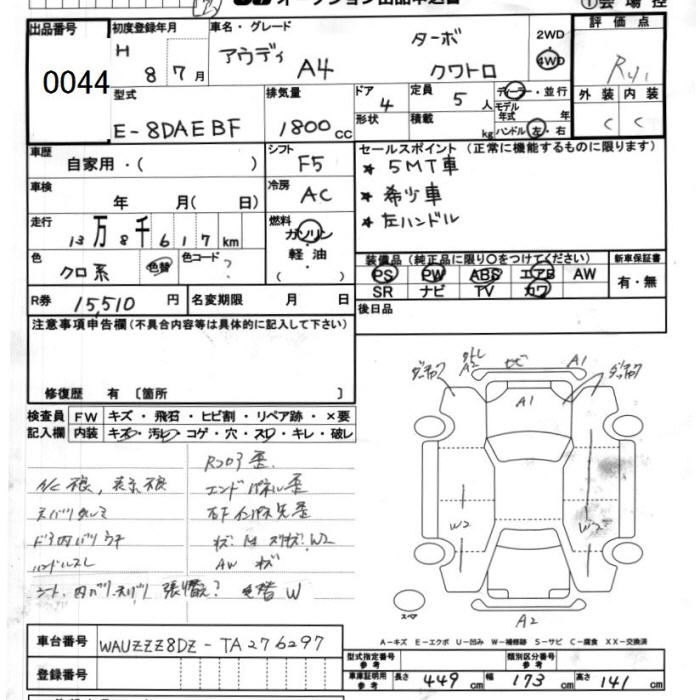 オークション出品申込書
①会場控
出品番号
0044
初度登録年月
H 8 7月
車名・グレード
アウディ A4 ターボ クワトロ
2WD
4WD
評価点
外装 内装
C C
型式
E-8DAEBF
排気量
1800cc
ドア 4
定員 5人
形状
積載 kg
ディーラー・並行
モデル年式 年
ハンドル 左・右
車歴
自家用・( )
シフト
F5
セールスポイント(正常に機能するものに限ります)
★ 5MT車
★ 希少車
★ 左ハンドル
車検
年 月( 日)
冷房
AC
走行
13万8千617km
燃料
ガソリン
軽油
・( )
色
クロ系
色替
色コード?
装備品(純正品に限り○をつけてください)
PS PW ABS エアB AW
SR ナビ TV カワ
新車保証書
有・無
R券 15,510円
名変期限 月 日
後日品
注意事項申告欄(不具合内容等は具体的に記入して下さい)
修復歴 有 〔箇所 〕
検査員記入欄
FW キズ・飛石・ヒビ割・リペア跡・×要
内装 キズ・汚レ・コゲ・穴・スレ・キレ・破レ
Rコア歪
エンドパネル歪
AW キズ
ハンドルスレ
色替 W
A2
A1
A1
W2
W2
A2
スペア
A-キズ E-エクボ U-凹み W-補修跡 S-サビ C-腐食 XX-交換済
車台番号
WAUZZZ8DZ-TA276297
登録番号
型式指定番号
参考
類別区分番号
参考
車庫証明用
参考
長さ 449cm
幅 173cm
高さ 141cm